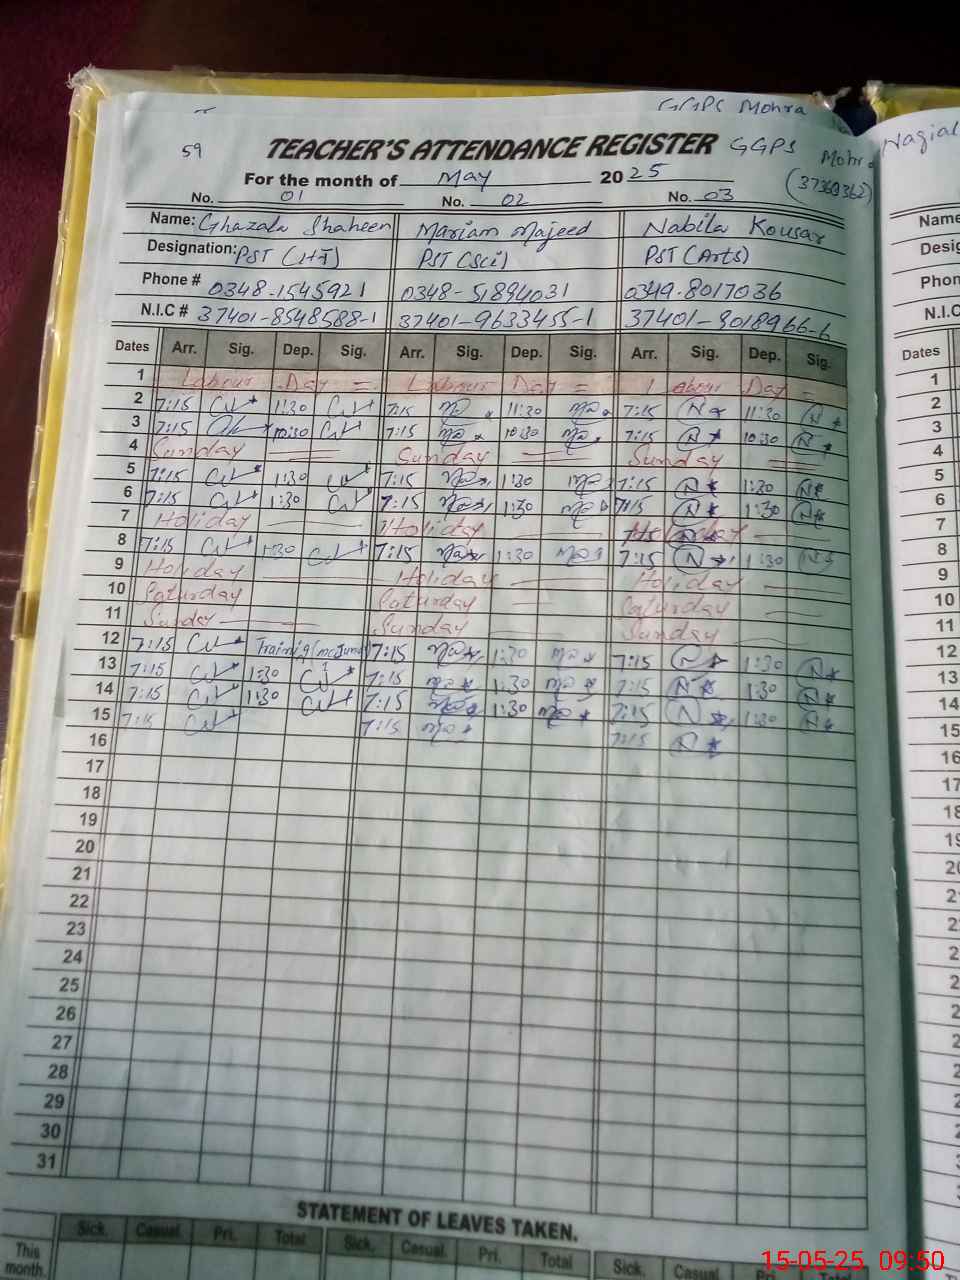 GGPS Mohra
59 TEACHER'S ATTENDANCE REGISTER GGPS Mohra Nagial
For the month of May 2025 (37360362)
No. 01 No. 02 No. 03
Name: Ghazala Shaheen Mariam Majeed Nabila Kousar Name
Designation: PST (HT) PST (Sci) PST (Arts)
Phone # 0348-1545921 0348-51894031 0349-8017036
N.I.C # 37401-8548588-1 37401-9633455-1 37401-9018966-6 N.I.C
Dates Arr. Sig. Dep. Sig. Arr. Sig. Dep. Sig. Arr. Sig. Dep. Sig. Dates
1 Labour Day = Labour Day = Labour Day = 1
2 7:15 11:30 7:15 11:30 7:15 N 11:30 N 2
3 7:15 10:30 7:15 10:30 7:15 N 10:30 N 3
4 Sunday Sunday Sunday 4
5 7:15 1:30 7:15 1:30 7:15 N 1:30 N 5
6 7:15 1:30 7:15 1:30 7:15 N 1:30 N 6
7 Holiday Holiday Holiday 7
8 7:15 1:30 7:15 1:30 7:15 N 1:30 N 8
9 Holiday Holiday Holiday 9
10 Saturday Saturday Saturday 10
11 Sunday Sunday Sunday 11
12 7:15 Training 7:15 1:30 7:15 N 1:30 N 12
13 7:15 1:30 7:15 1:30 7:15 N 1:30 N 13
14 7:15 1:30 7:15 1:30 7:15 N 1:30 N 14
15 7:15 7:15 7:15 N 15
16 16
17 17
18
19
20
21
22
23
24
25
26
27
28
29
30
31
STATEMENT OF LEAVES TAKEN.
Sick. Casual. Pri. Total Sick. Casual. Pri. Total Sick. Casual
This month.
15-05-25 09:50